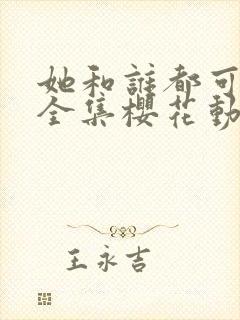 她和誰都可
全集櫻花動
王永吉